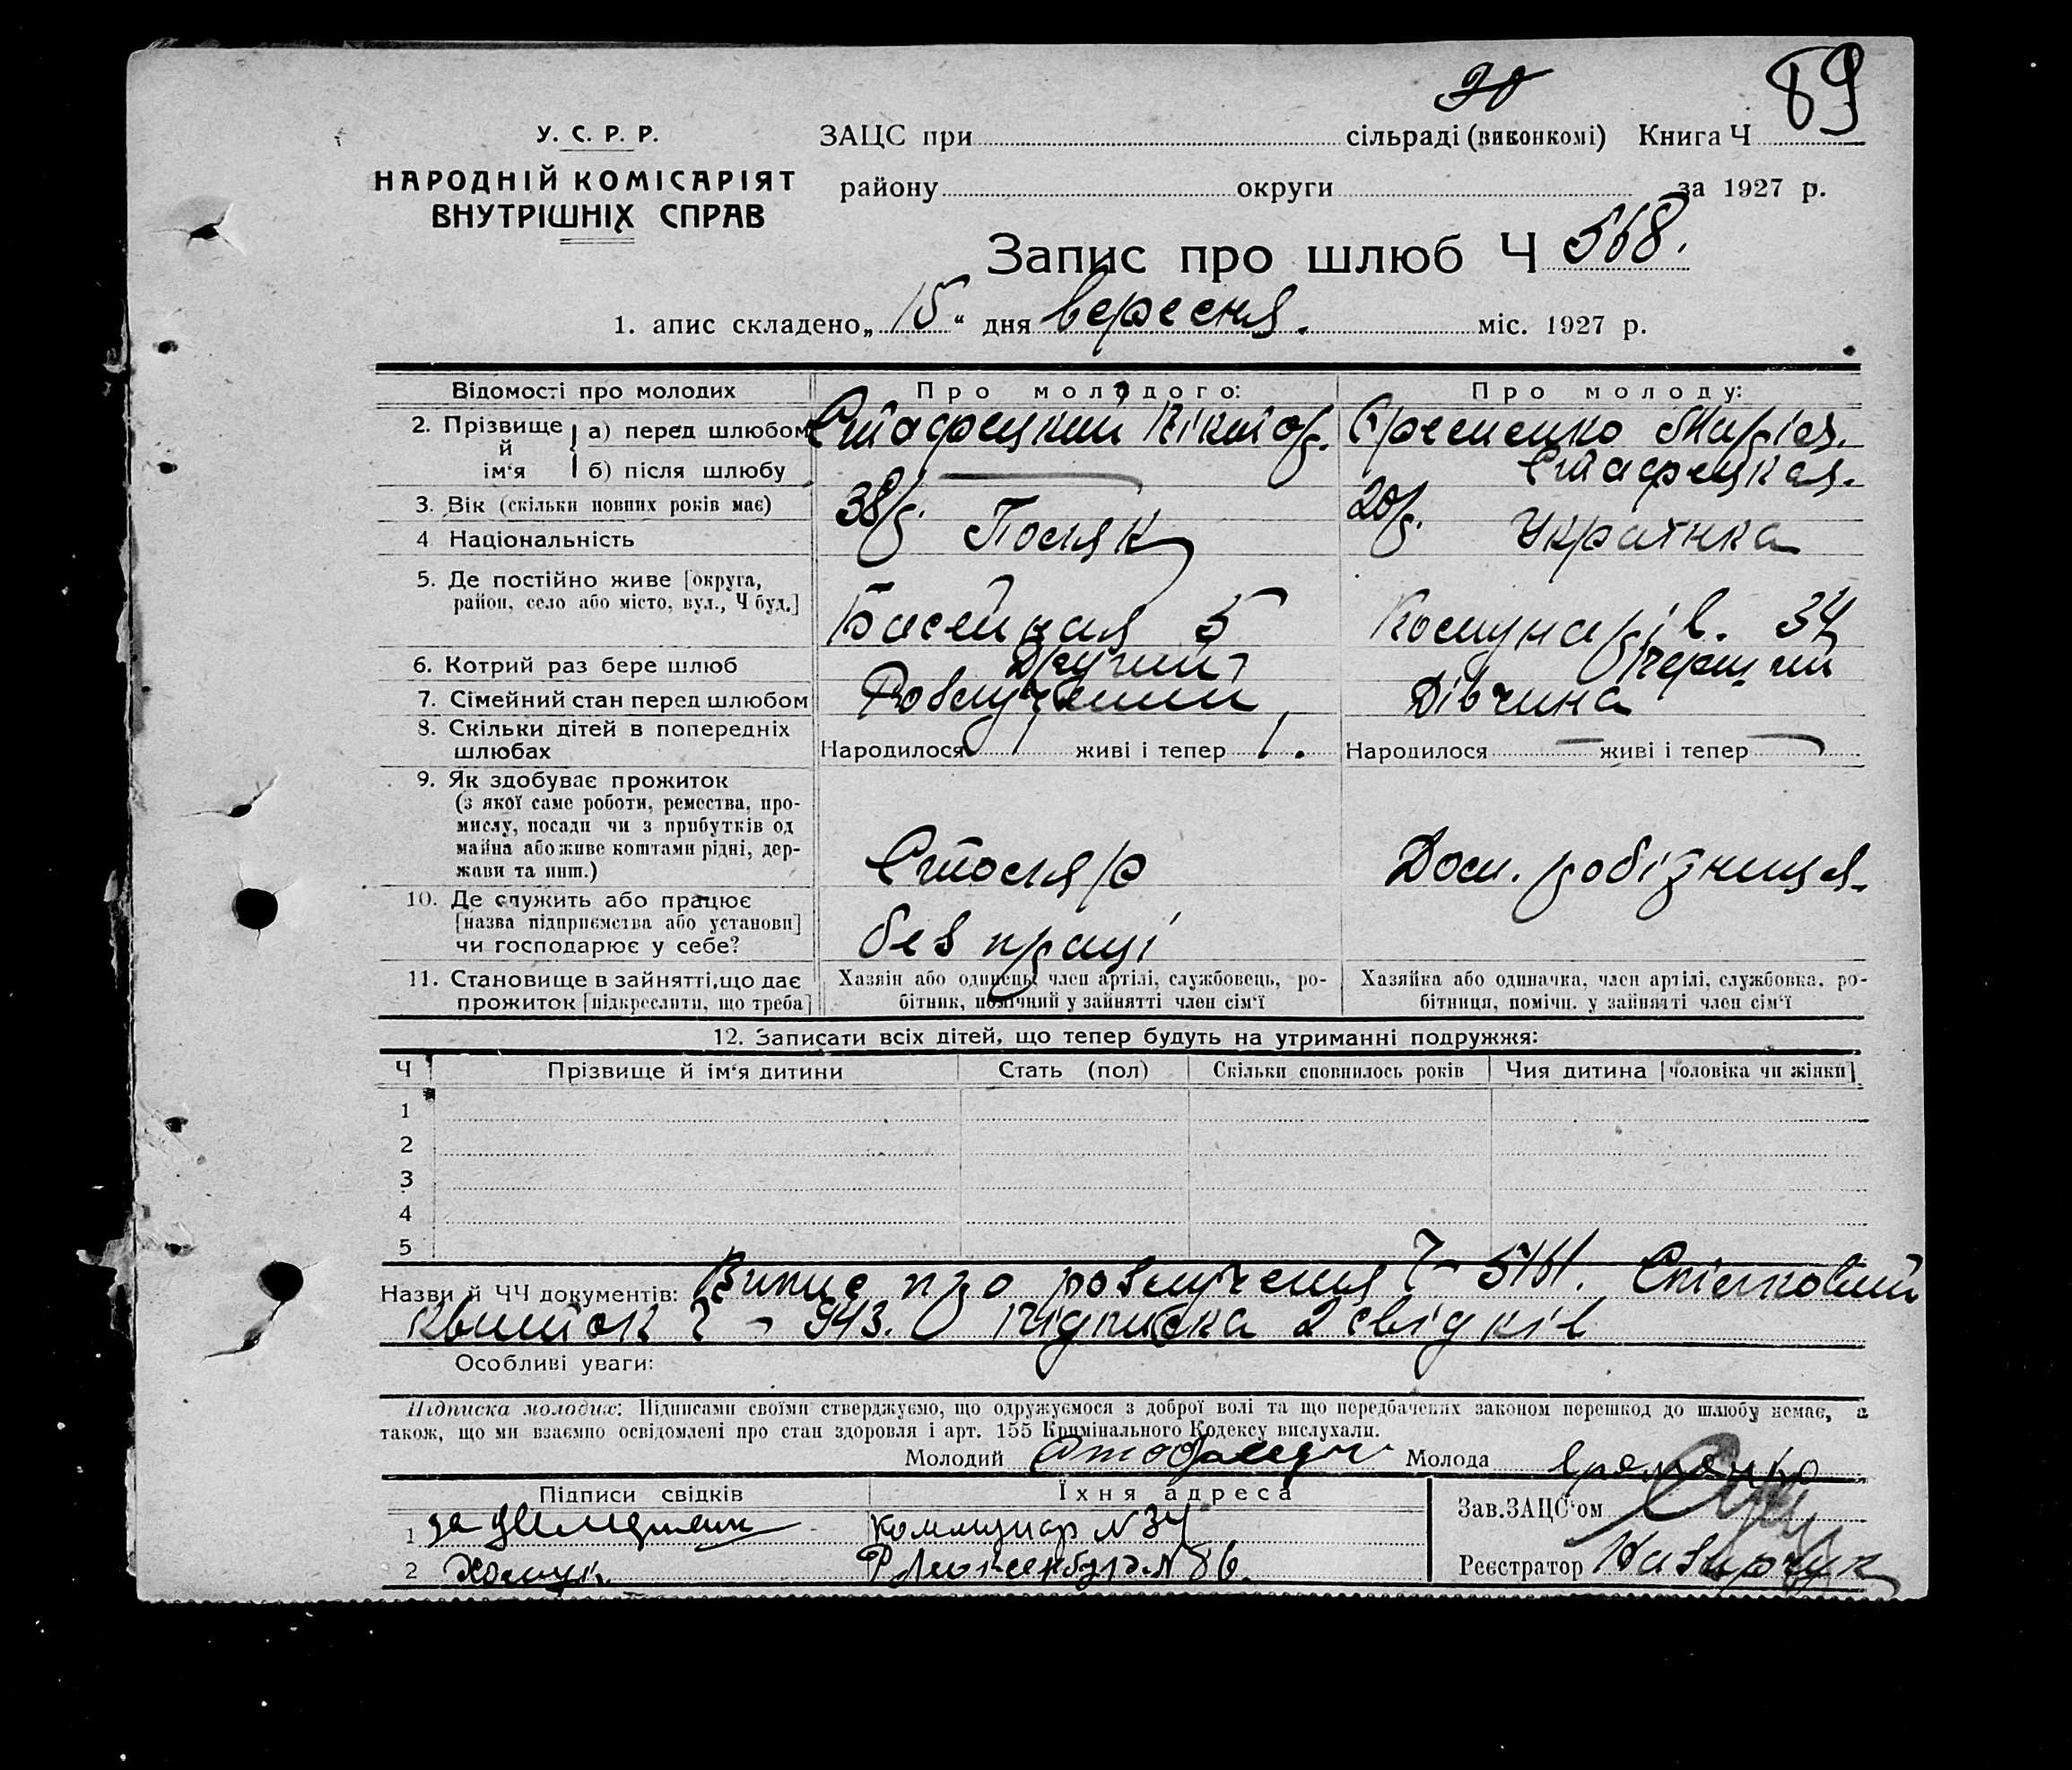 89
У. С. Р. Р.
НАРОДНІЙ КОМІСАРІЯТ
ВНУТРІШНІХ СПРАВ
ЗАЦС при сільраді (виконкомі) Книга Ч
району округи за 1927 р.
Запис про шлюб Ч 568.
1. апис складено „15“ дня вересня. міс. 1927 р.
Відомості про молодих Про молодого: Про молоду:
2. Прізвище й ім'я
а) перед шлюбом Віктор. Єременко Марія.
б) після шлюбу
3. Вік (скільки повних років має) 38 р. 20 р.
4 Національність Поляк Українка
5. Де постійно живе [округа,
район, село або місто, вул., Ч буд.] Басейная 5 Комунарів. 34
6. Котрий раз бере шлюб Другий Перший
7. Сімейний стан перед шлюбом Розлучений Дівчина
8. Скільки дітей в попередніх
шлюбах Народилося 1 живі і тепер 1. Народилося — живі і тепер —
9. Як здобуває прожиток
(з якої саме роботи, ремества, про-
мислу, посади чи з прибутків од
майна або живе коштами рідні, дер-
жави та инш.) Столяр Дом. робітниця.
10. Де служить або працює
[назва підприємства або установи]
чи господарює у себе? без праці
11. Становище в зайнятті, що дає
прожиток [підкреслити, що треба]
Хазяїн або одинець, член артілі, службовець, ро-
бітник, помічний у зайнятті член сім'ї
Хазяйка або одиначка, член артілі, службовка, ро-
бітниця, помічн. у зайнятті член сім'ї
12. Записати всіх дітей, що тепер будуть на утриманні подружжя:
Ч Прізвище й ім'я дитини Стать (пол) Скільки сповнилось років Чия дитина [чоловіка чи жінки]
1
2
3
4
5
Назви й ЧЧ документів: Випис про розлучення Ч– 5161. Спілковий
Квиток Ч – 943. Підписка 2 свідків
Особливі уваги:
Підписка молодих: Підписами своїми стверджуємо, що одружуємося з доброї волі та що передбачених законом перешкод до шлюбу немає, а
також, що ми взаємно освідомлені про стан здоровля і арт. 155 Кримінального Кодексу вислухали.
Молодий Молода
Підписи свідків Їхня адреса Зав. ЗАЦС'ом
1 Коммунар N 34
2 Р Люксенбург N 86. Реєстратор